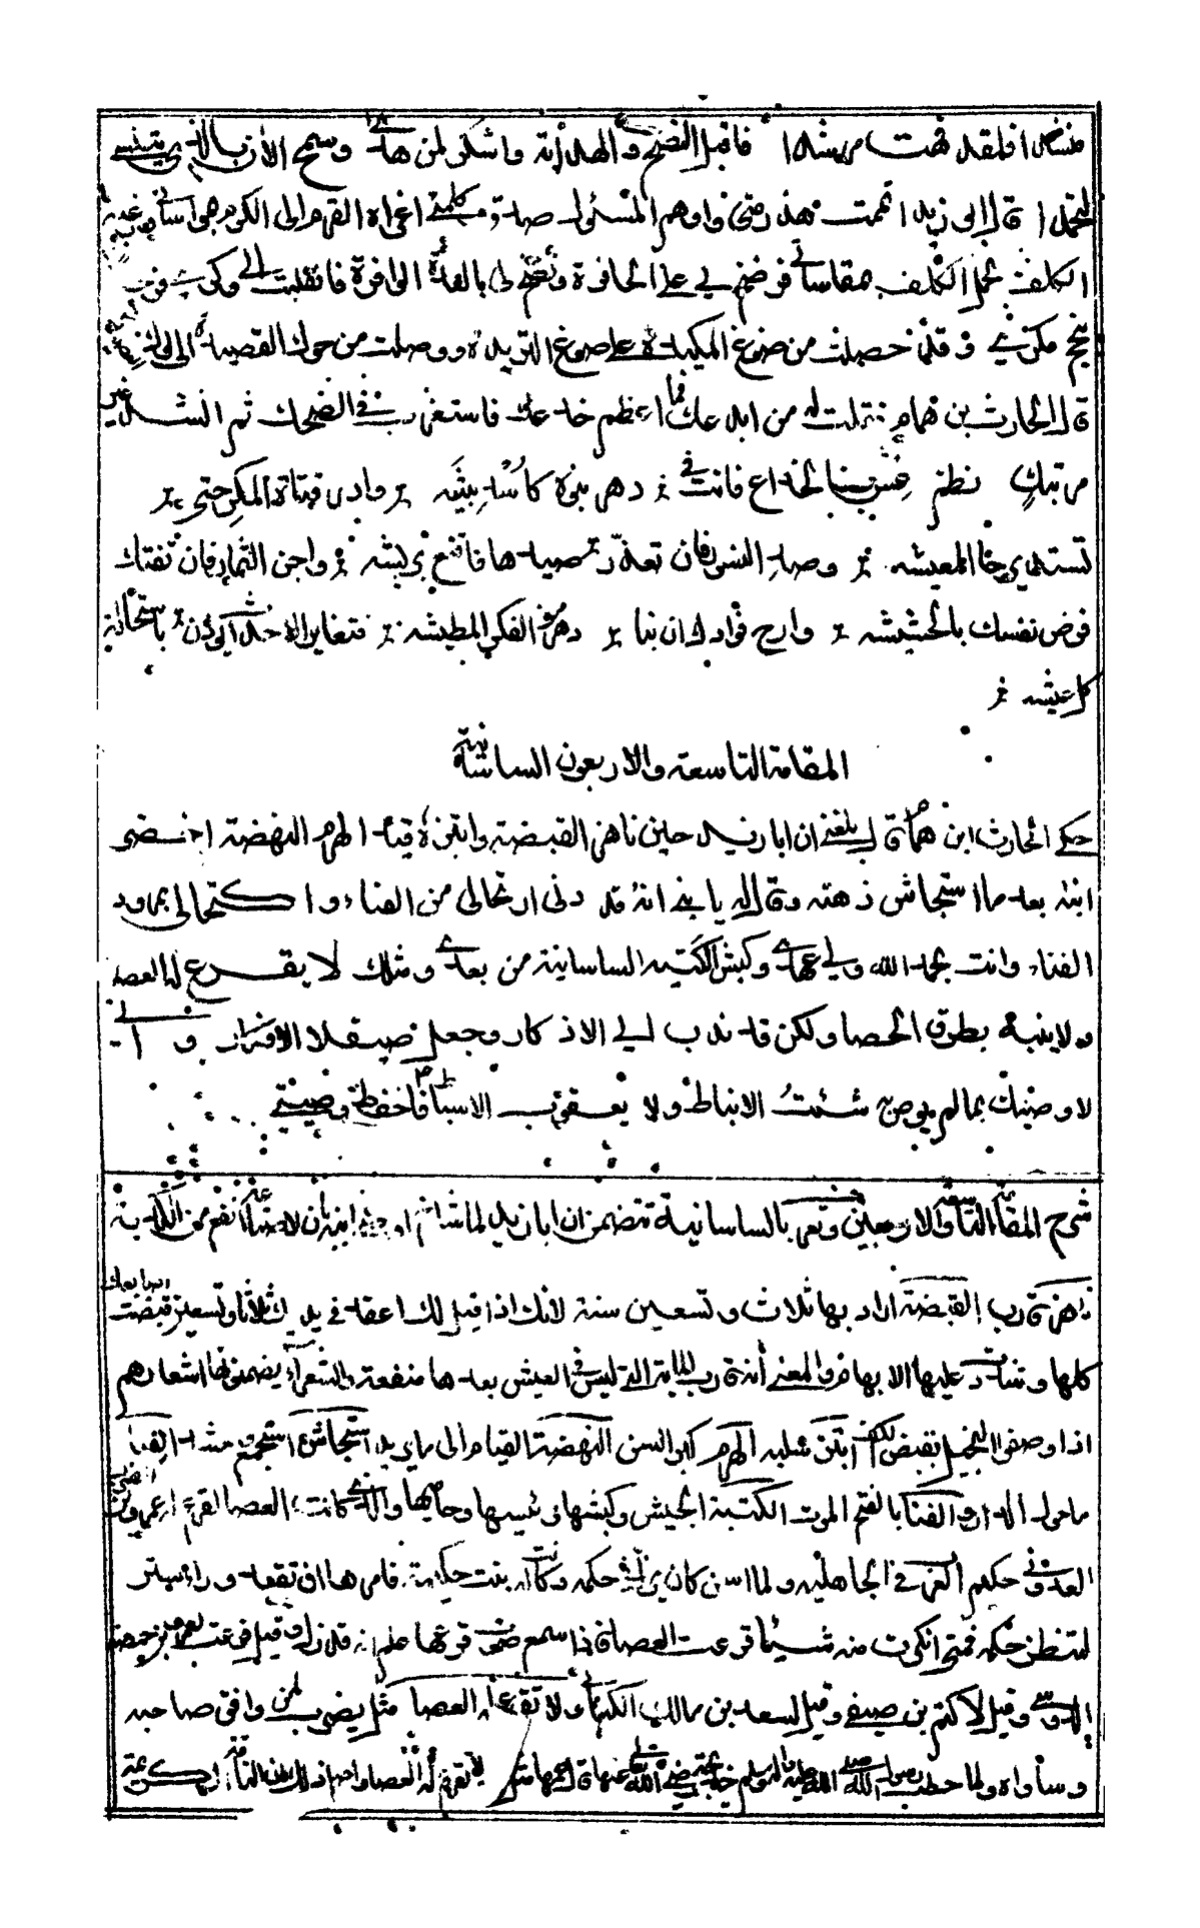 منشدا فلقد فهت مرشدا فاقبل النصح والهداية واشكر لمن هدى وسمح الآن بالذي يتسنى
ليحمدا قال ابو زيد اتممت هذرمتي واوهم المسئول صدق كلمتي اغراه القرم الى الكرم بمواساتي
الكلف بحمل الكلف بمقاساتي فرضخ لي على الحافرة ونضح لي بالعدة الوافرة فانقلبت الى وكري فرحا
بنجح مكري وقد حصلت من صوغ المكيدة على سوغ الثريدة ووصلت من حوك القصيدة الى لوك
قال الحارث بن همام فقلت له من ابدعك فما اعظم خدعك فاستغرب في الضحك ثم انشد غير
مرتبك نظم عش بالخداع فانت في دهر بنوه كأسد بيشه وادر قناة المكر حتى
تستدير رحا المعيشه وصد النسور فان تعذر صيدها فاقنع بريشه واجن الثمار فان تفتك
فرض نفسك بالحشيشه وارح فؤادك ان نبا دهر من الفكر المطيشه فتغاير الاحداث يوذن باستحالة
كل عيشه
المقامة التاسعة والاربعون الساسانية
حكى الحارث ابن همام قال بلغني ان ابا زيد حين ناهز القبضة وابتزه قيد الهرم النهضة احضر
ابنه بعد ما استجاش ذهنه وقال له يا بني انه قد دنى ارتحالي من الفناء واكتحالي بمرود
الفناء وانت بحمد الله ولي عهدي وكبش الكتيبة الساسانية من بعدي ومثلك لا يقرع له العصا
ولا ينبه بطرق الحصا ولكن قد ندب الى الاذكار وجعل صيقلا للافكار واني
لاوصيك بما لم يوص به شيث الانباط ولا يعقوب الاسباط فاحفظ وصيتي
شرح المقامة التاسعة والاربعين وتعرف بالساسانية تتضمن ان ابا زيد لما شاخ اوصى ابنه بان لا صناعة انفع من الكدية
ناهز قارب القبضة اراد بها ثلاث وتسعين سنة لانك اذا قيل لك اعقد في يدك ثلاثا وتسعين قبضت اصابعك
كلها وشددت عليها الابهام والمعنى أنه قارب المائة التي ليس في العيش بعدها منفعة والشعراء يضمنونها اشعارهم
اذا وصفوا البخيل بقبض الكف ابتزه سلبه الهرم كبر السن النهضة القيام الى ما يريد استجاش استجمع مشد الفناء
ما حول الدار الفنا بالفتح الموت الكتيبة الجيش وكبشها رئيسها وحاميها والذي كانت العصا تقرع له عمرو بن
العدواني حكيم العرب في الجاهلية ولما اسن كان يزل في حكمه وكانت له بنت حكيمة فامرها ان تقعد وراء ستر
لتنظر حكمه فمتى انكرت منه شيئا قرعت العصا فاذا سمع صوت قرعها علم انه قد زل وقيل قرعت لعمرو بن حممة
الدوسي وقيل لاكثم بن صيفي وقيل لسعد بن مالك الكناني ولا تقرع له العصا مثل يضرب لمن وافق صاحبه
وساواه ولما خطب رسول الله صلى الله عليه وسلم خديجة رضي الله تعالى عنها قال عمها مثل لا تقرع له العصا